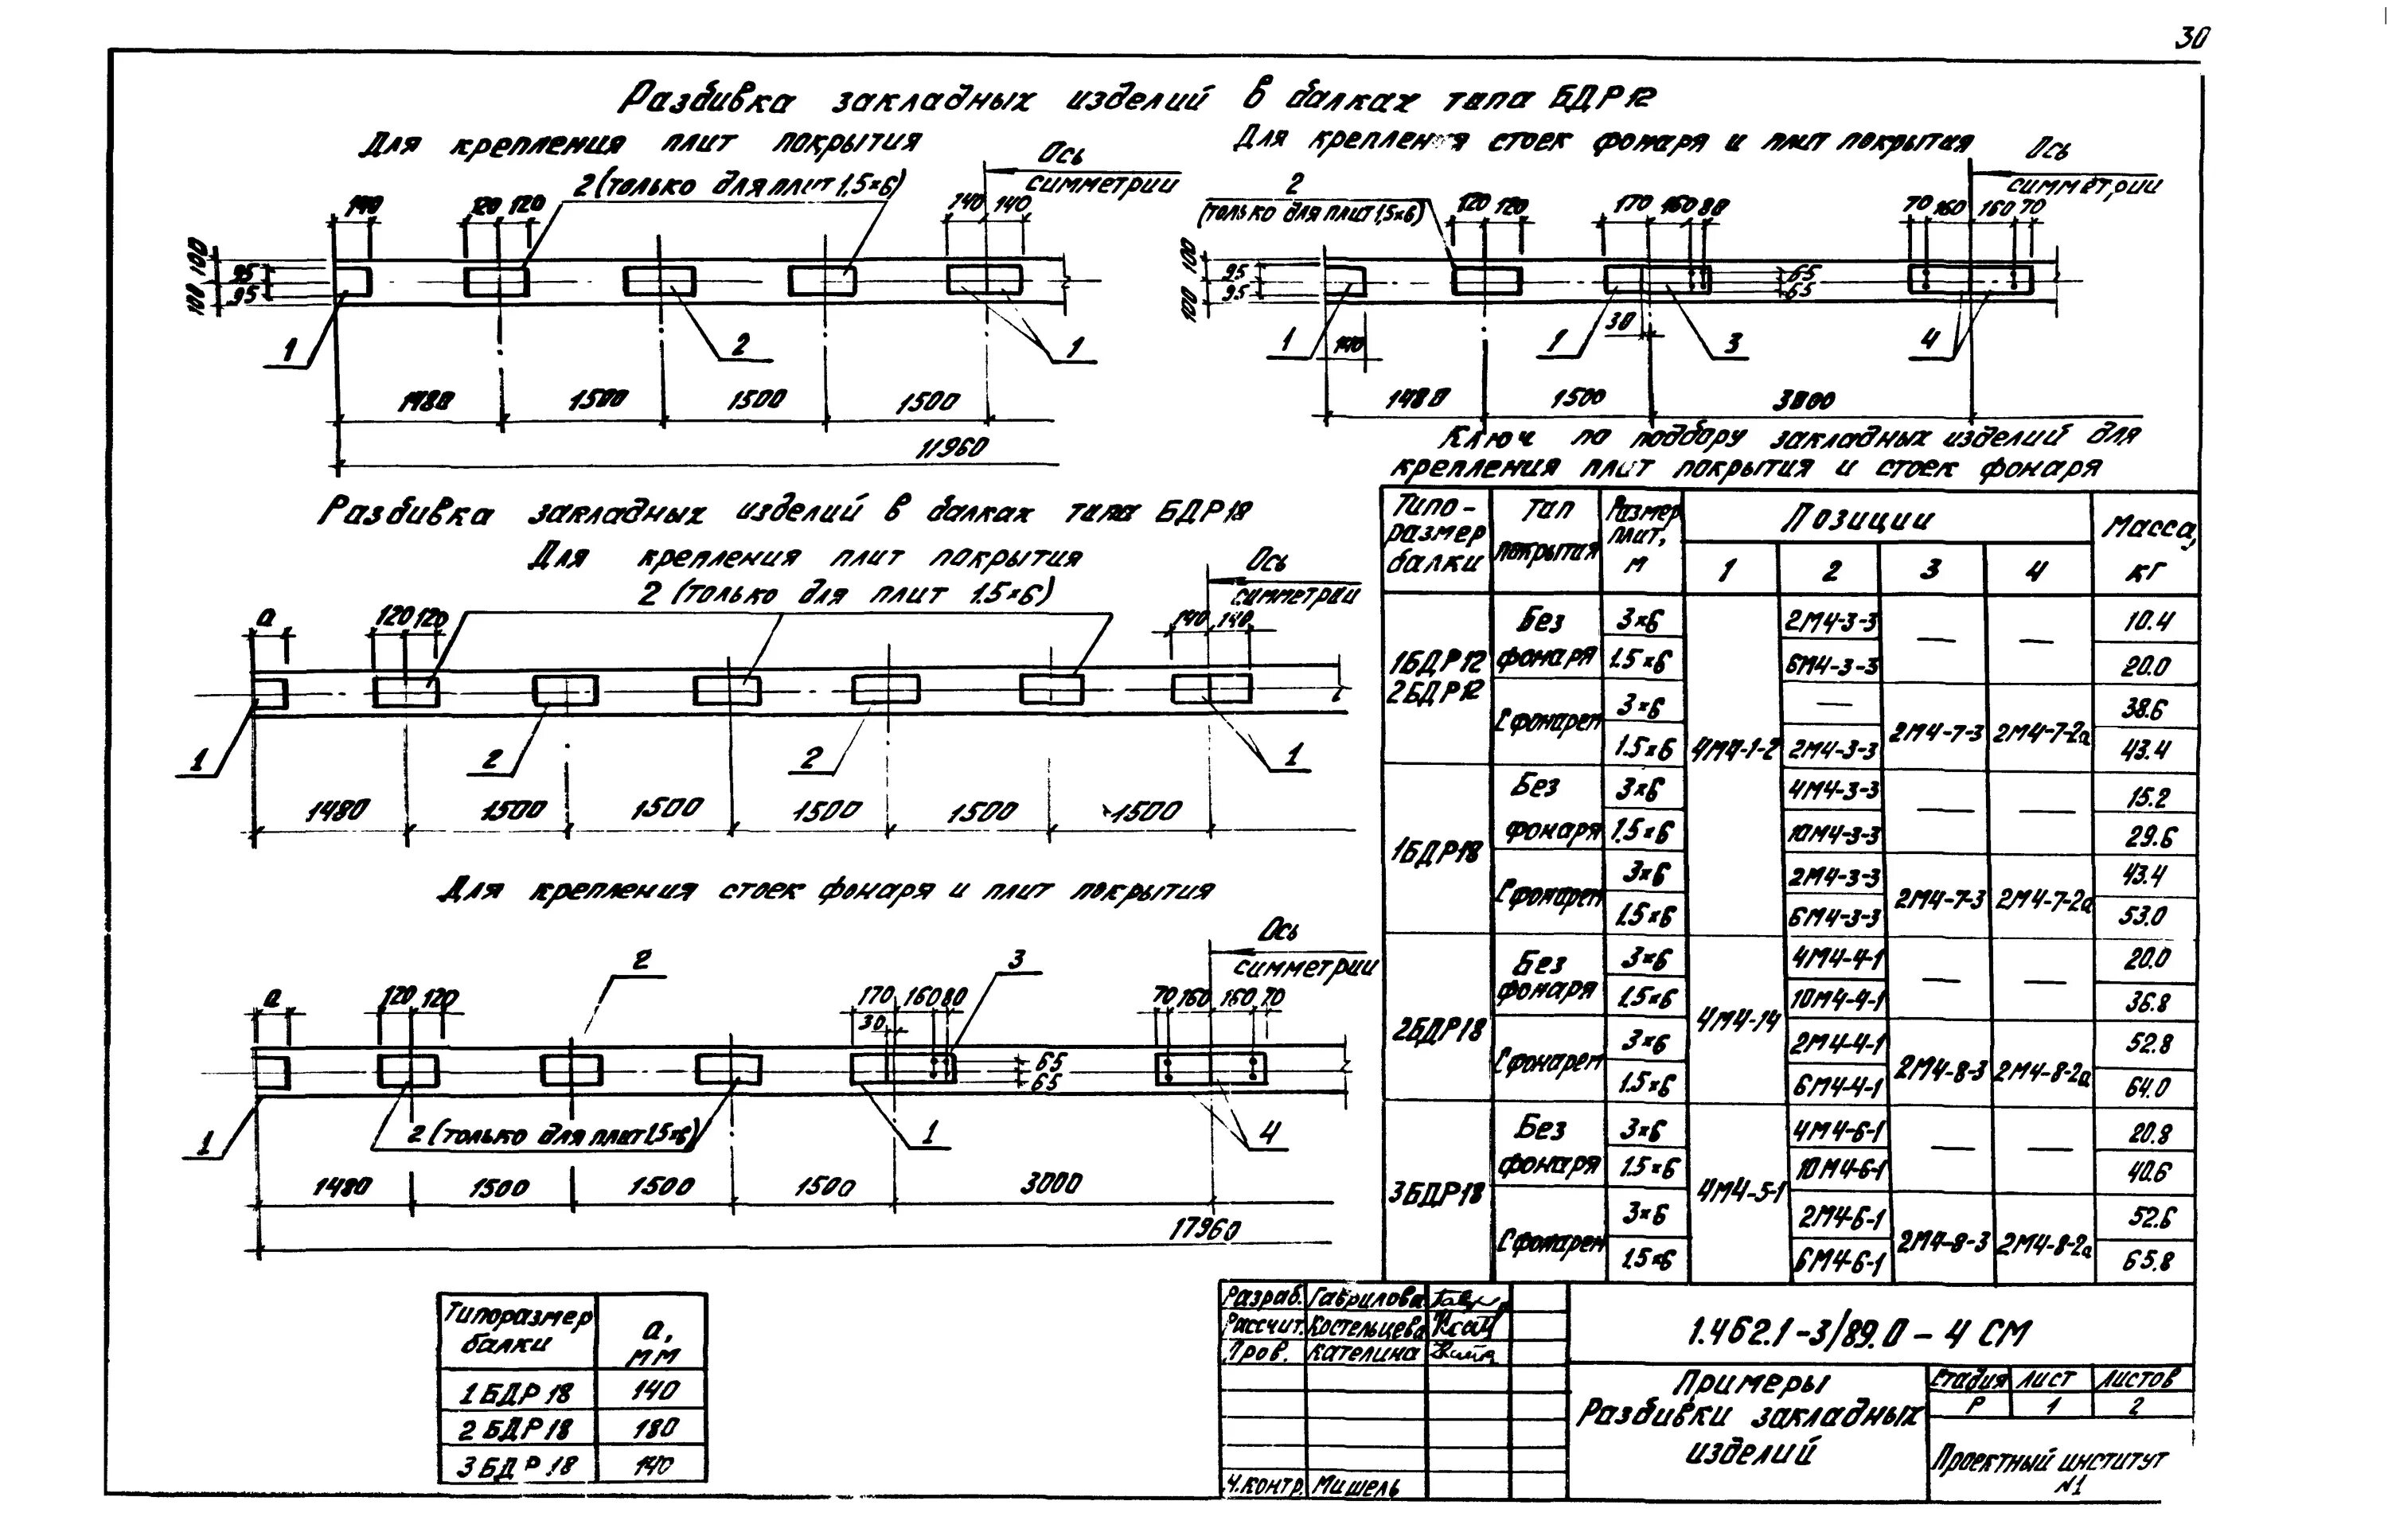 30
Разбивка закладных изделий в балках типа БДР12
Для крепления плит покрытия
2 (только для плит 1,5×6)
Ось
симметрии
140
120 120
140 140
100 100
95
95
1
2
1
1480
1500
1500
1500
11960
Для крепления стоек фонаря и плит покрытия
2
(только для плит 1,5×6)
Ось
симметрии
120 120
170 160 80
70 160 160 70
100 100
95
95
65
65
30
140
1
1
3
4
1480
1500
3000
Разбивка закладных изделий в балках типа БДР18
Для крепления плит покрытия
2 (только для плит 1.5×6)
Ось
симметрии
а
120 120
140 140
1
2
2
1
1480
1500
1500
1500
1500
1500
Для крепления стоек фонаря и плит покрытия
2
3
Ось
симметрии
а
120 120
170 160 80
30
70 160 160 70
65
65
1
2 (только для плит 1.5×6)
1
4
1480
1500
1500
1500
3000
17960
Типоразмер балки | а, мм
1БДР18 | 140
2БДР18 | 180
3БДР18 | 140
Ключ по подбору закладных изделий для
крепления плит покрытия и стоек фонаря
Типо-размер балки | Тип покрытия | Размер плит, м | Позиции | Масса, кг
1 | 2 | 3 | 4
1БДР12 2БДР12 | Без фонаря | 3×6 | 4М4-1-2 | 2М4-3-3 | — | — | 10.4
1.5×6 | 6М4-3-3 | 20.0
С фонарем | 3×6 | — | 2М4-7-3 | 2М4-7-2а | 38.6
1.5×6 | 2М4-3-3 | 43.4
1БДР18 | Без фонаря | 3×6 | 4М4-3-3 | — | — | 15.2
1.5×6 | 10М4-3-3 | 29.6
С фонарем | 3×6 | 2М4-3-3 | 2М4-7-3 | 2М4-7-2а | 43.4
1.5×6 | 6М4-3-3 | 53.0
2БДР18 | Без фонаря | 3×6 | 4М4-14 | 4М4-4-1 | — | — | 20.0
1.5×6 | 10М4-4-1 | 36.8
С фонарем | 3×6 | 2М4-4-1 | 2М4-8-3 | 2М4-8-2а | 52.8
1.5×6 | 6М4-4-1 | 64.0
3БДР18 | Без фонаря | 3×6 | 4М4-5-1 | 4М4-6-1 | — | — | 20.8
1.5×6 | 10М4-6-1 | 40.6
С фонарем | 3×6 | 2М4-6-1 | 2М4-8-3 | 2М4-8-2а | 52.6
1.5×6 | 6М4-6-1 | 65.8
Разраб. Гаврилова
Рассчит. Костельцева
Пров. Кателина
Н.контр. Мишель
1.462.1-3/89.0-4 СМ
Примеры
Разбивки закладных
изделий
Стадия Лист Листов
Р 1 2
Проектный институт
N1